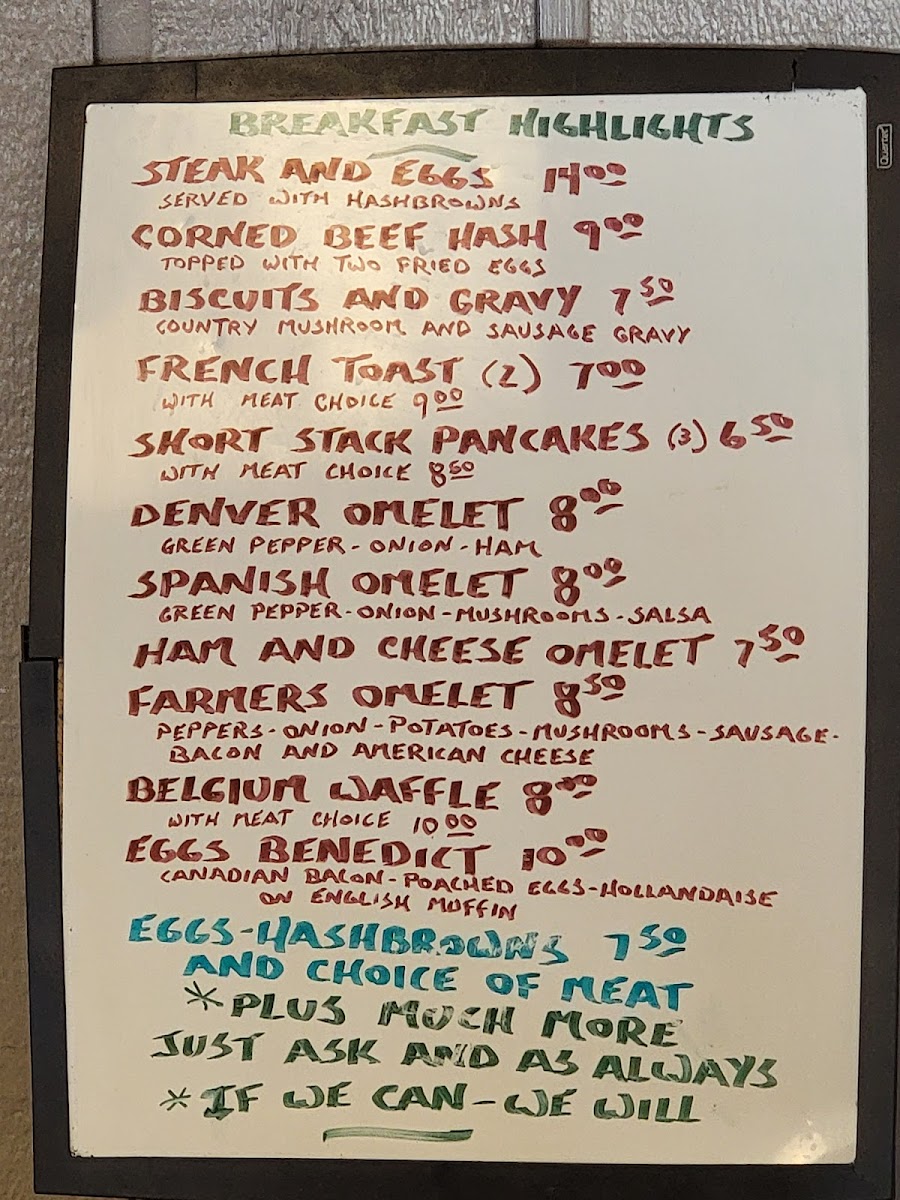 BREAKFAST HIGHLIGHTS
Quartet
STEAK AND EGGS 14 00
SERVED WITH HASHBROWNS
CORNED BEEF HASH 9 00
TOPPED WITH TWO FRIED EGGS
BISCUITS AND GRAVY 7 50
COUNTRY MUSHROOM AND SAUSAGE GRAVY
FRENCH TOAST (2) 7 00
WITH MEAT CHOICE 9 00
SHORT STACK PANCAKES (3) 6 50
WITH MEAT CHOICE 8 50
DENVER OMELET 8 00
GREEN PEPPER - ONION - HAM
SPANISH OMELET 8 00
GREEN PEPPER - ONION - MUSHROOMS - SALSA
HAM AND CHEESE OMELET 7 50
FARMERS OMELET 8 50
PEPPERS - ONION - POTATOES - MUSHROOMS - SAUSAGE -
BACON AND AMERICAN CHEESE
BELGIUM WAFFLE 8
WITH MEAT CHOICE 10 00
EGGS BENEDICT 10 00
CANADIAN BACON - POACHED EGGS - HOLLANDAISE
ON ENGLISH MUFFIN
EGGS - HASHBROWNS 7 50
AND CHOICE OF MEAT
* PLUS MUCH MORE
JUST ASK AND AS ALWAYS
* IF WE CAN - WE WILL